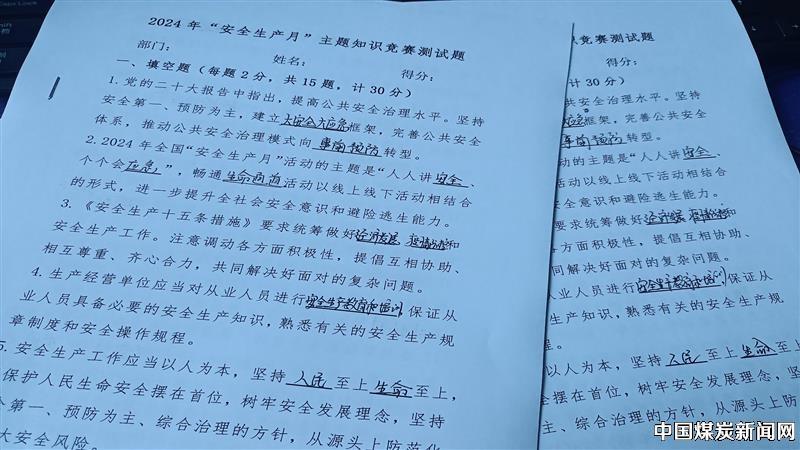 2024 年 “安全生产月” 主题知识竞赛测试题
部门: 姓名: 得分:
一、填空题（每题 2 分，共 15 题，计 30 分）
1. 党的二十大报告中指出，提高公共安全治理水平。坚持
安全第一、预防为主，建立大安全大应急框架，完善公共安全
体系，推动公共安全治理模式向事前预防转型。
2. 2024 年全国“安全生产月”活动的主题是“人人讲安全、
个个会应急”，畅通生命通道活动以线上线下活动相结合
的形式，进一步提升全社会安全意识和避险逃生能力。
3. 《安全生产十五条措施》要求统筹做好经济发展、疫情防控和
安全生产工作。注意调动各方面积极性，提倡互相协助、
相互尊重、齐心合力，共同解决好面对的复杂问题。
4. 生产经营单位应当对从业人员进行安全生产教育和培训，保证从
业人员具备必要的安全生产知识，熟悉有关的安全生产规
章制度和安全操作规程。
5. 安全生产工作应当以人为本，坚持人民至上生命至上，
保护人民生命安全摆在首位，树牢安全发展理念，坚持
全第一、预防为主、综合治理的方针，从源头上防范化
大安全风险。
识竞赛测试题
得分:
计 30 分）
共安全治理水平。坚持
应急框架，完善公共安全
事前预防转型。
动的主题是“人人讲安全、
活动以线上线下活动相结合
安全意识和避险逃生能力。
要求统筹做好经济发展、疫情防控和
各方面积极性，提倡互相协助、
同解决好面对的复杂问题。
从业人员进行安全生产教育和培训，保证从
生产知识，熟悉有关的安全生产规
程。
以人为本，坚持人民至上生命至上，
全摆在首位，树牢安全发展理念，坚
主、综合治理的方针，从源头上防
中国煤炭新闻网